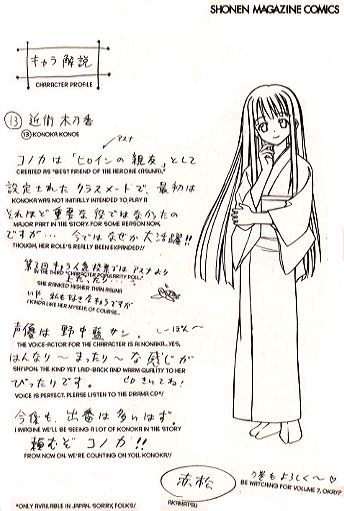 SHONEN MAGAZINE COMICS
キャラ解説
CHARACTER PROFILE
⑬ 近衛 木乃香
⑬ KONOKA KONOE
アスナ
コノカは「ヒロインの親友」として
CREATED AS "BEST FRIEND OF THE HEROINE (ASUNA),"
設定されたクラスメートで、最初は
KONOKA WAS NOT INITIALLY INTENDED TO PLAY A
それほど重要な役ではなかったの
MAJOR PART IN THE STORY. FOR SOME REASON NOW,
ですが… 今ではなぜか大活躍!!
THOUGH, HER ROLE'S REALLY BEEN EXPANDED!!
第3回キャラ人気投票ではアスナより
IN THE THIRD "CHARACTER POPULARITY POLL,"
上だったり…
SHE RANKED HIGHER THAN ASUNA.
いや、私も好きなキャラですが
I KINDA LIKE HER MYSELF, OF COURSE...
声優は 野中藍サン。 しーぽん〜
THE VOICE-ACTOR FOR THE CHARACTER IS AI NONAKA...YES,
はんなり〜まったり〜な感じが
SHI'PON. THE KIND YET LAID-BACK AND WARM QUALITY TO HER
ぴったりです。 CDきいてね!
VOICE IS PERFECT. PLEASE LISTEN TO THE DRAMA CD*!!
今後も、出番は多いはず。
I IMAGINE WE'LL BE SEEING A LOT OF KONOKA IN THE STORY
頼むぞ コノカ!!
FROM NOW ON. WE'RE COUNTING ON YOU, KONOKA!!
赤松
AKAMATSU
7巻もよろしく〜♡
BE WATCHING FOR VOLUME 7, OKAY?
*ONLY AVAILABLE IN JAPAN. SORRY, FOLKS!